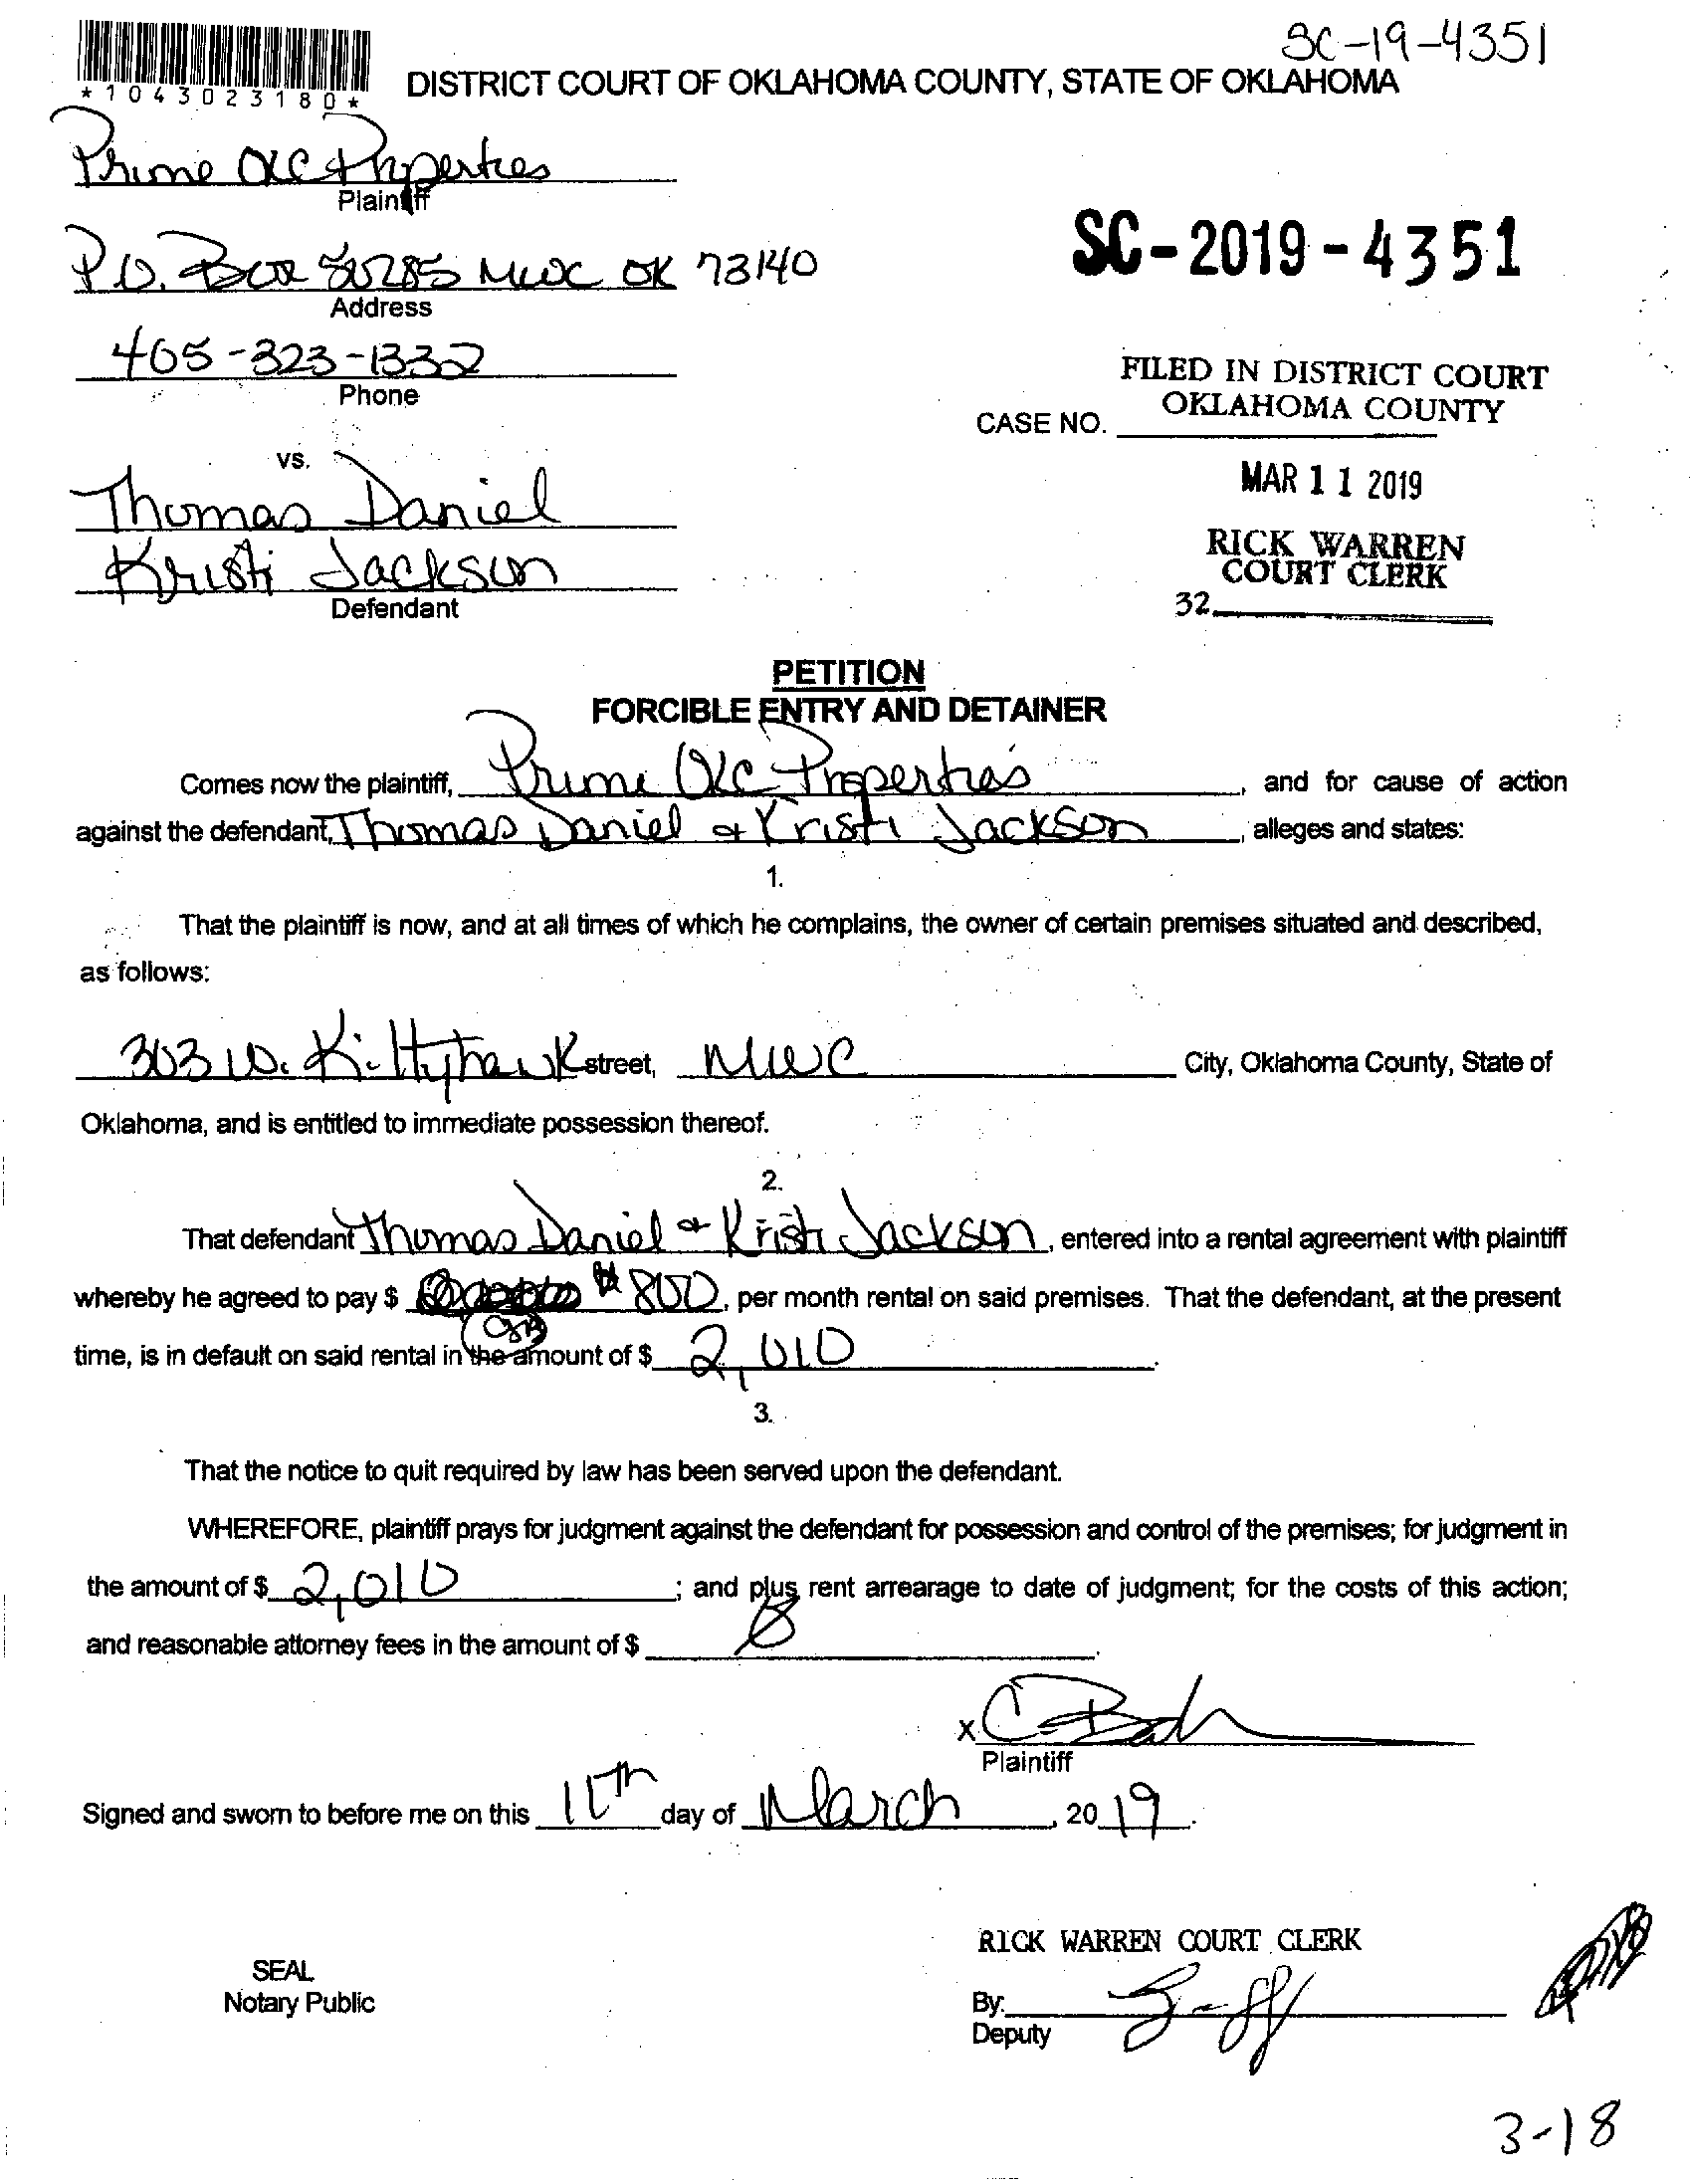 SC-19-4351
*1043023180*
DISTRICT COURT OF OKLAHOMA COUNTY, STATE OF OKLAHOMA
Prime OKC Properties
Plaintiff
P.O. Box MWC OK 73140
Address
SC-2019-4351
405-323-1332
Phone
FILED IN DISTRICT COURT
OKLAHOMA COUNTY
CASE NO.
vs.
MAR 11 2019
Thomas Daniel
Kristi Jackson
Defendant
RICK WARREN
COURT CLERK
32
PETITION
FORCIBLE ENTRY AND DETAINER
Comes now the plaintiff, Prime OKC Properties, and for cause of action
against the defendant, Thomas Daniel & Kristi Jackson, alleges and states:
1.
That the plaintiff is now, and at all times of which he complains, the owner of certain premises situated and described,
as follows:
303 W. Kittyhawk street, MWC City, Oklahoma County, State of
Oklahoma, and is entitled to immediate possession thereof.
2.
That defendant Thomas Daniel & Kristi Jackson, entered into a rental agreement with plaintiff
whereby he agreed to pay $ $800, per month rental on said premises. That the defendant, at the present
time, is in default on said rental in the amount of $ 2,010.
3.
That the notice to quit required by law has been served upon the defendant.
WHEREFORE, plaintiff prays for judgment against the defendant for possession and control of the premises; for judgment in
the amount of $ 2,010; and plus rent arrearage to date of judgment; for the costs of this action;
and reasonable attorney fees in the amount of $
x
Plaintiff
Signed and sworn to before me on this 11th day of March, 20 19.
RICK WARREN COURT CLERK
SEAL
Notary Public
By:
Deputy
3-18